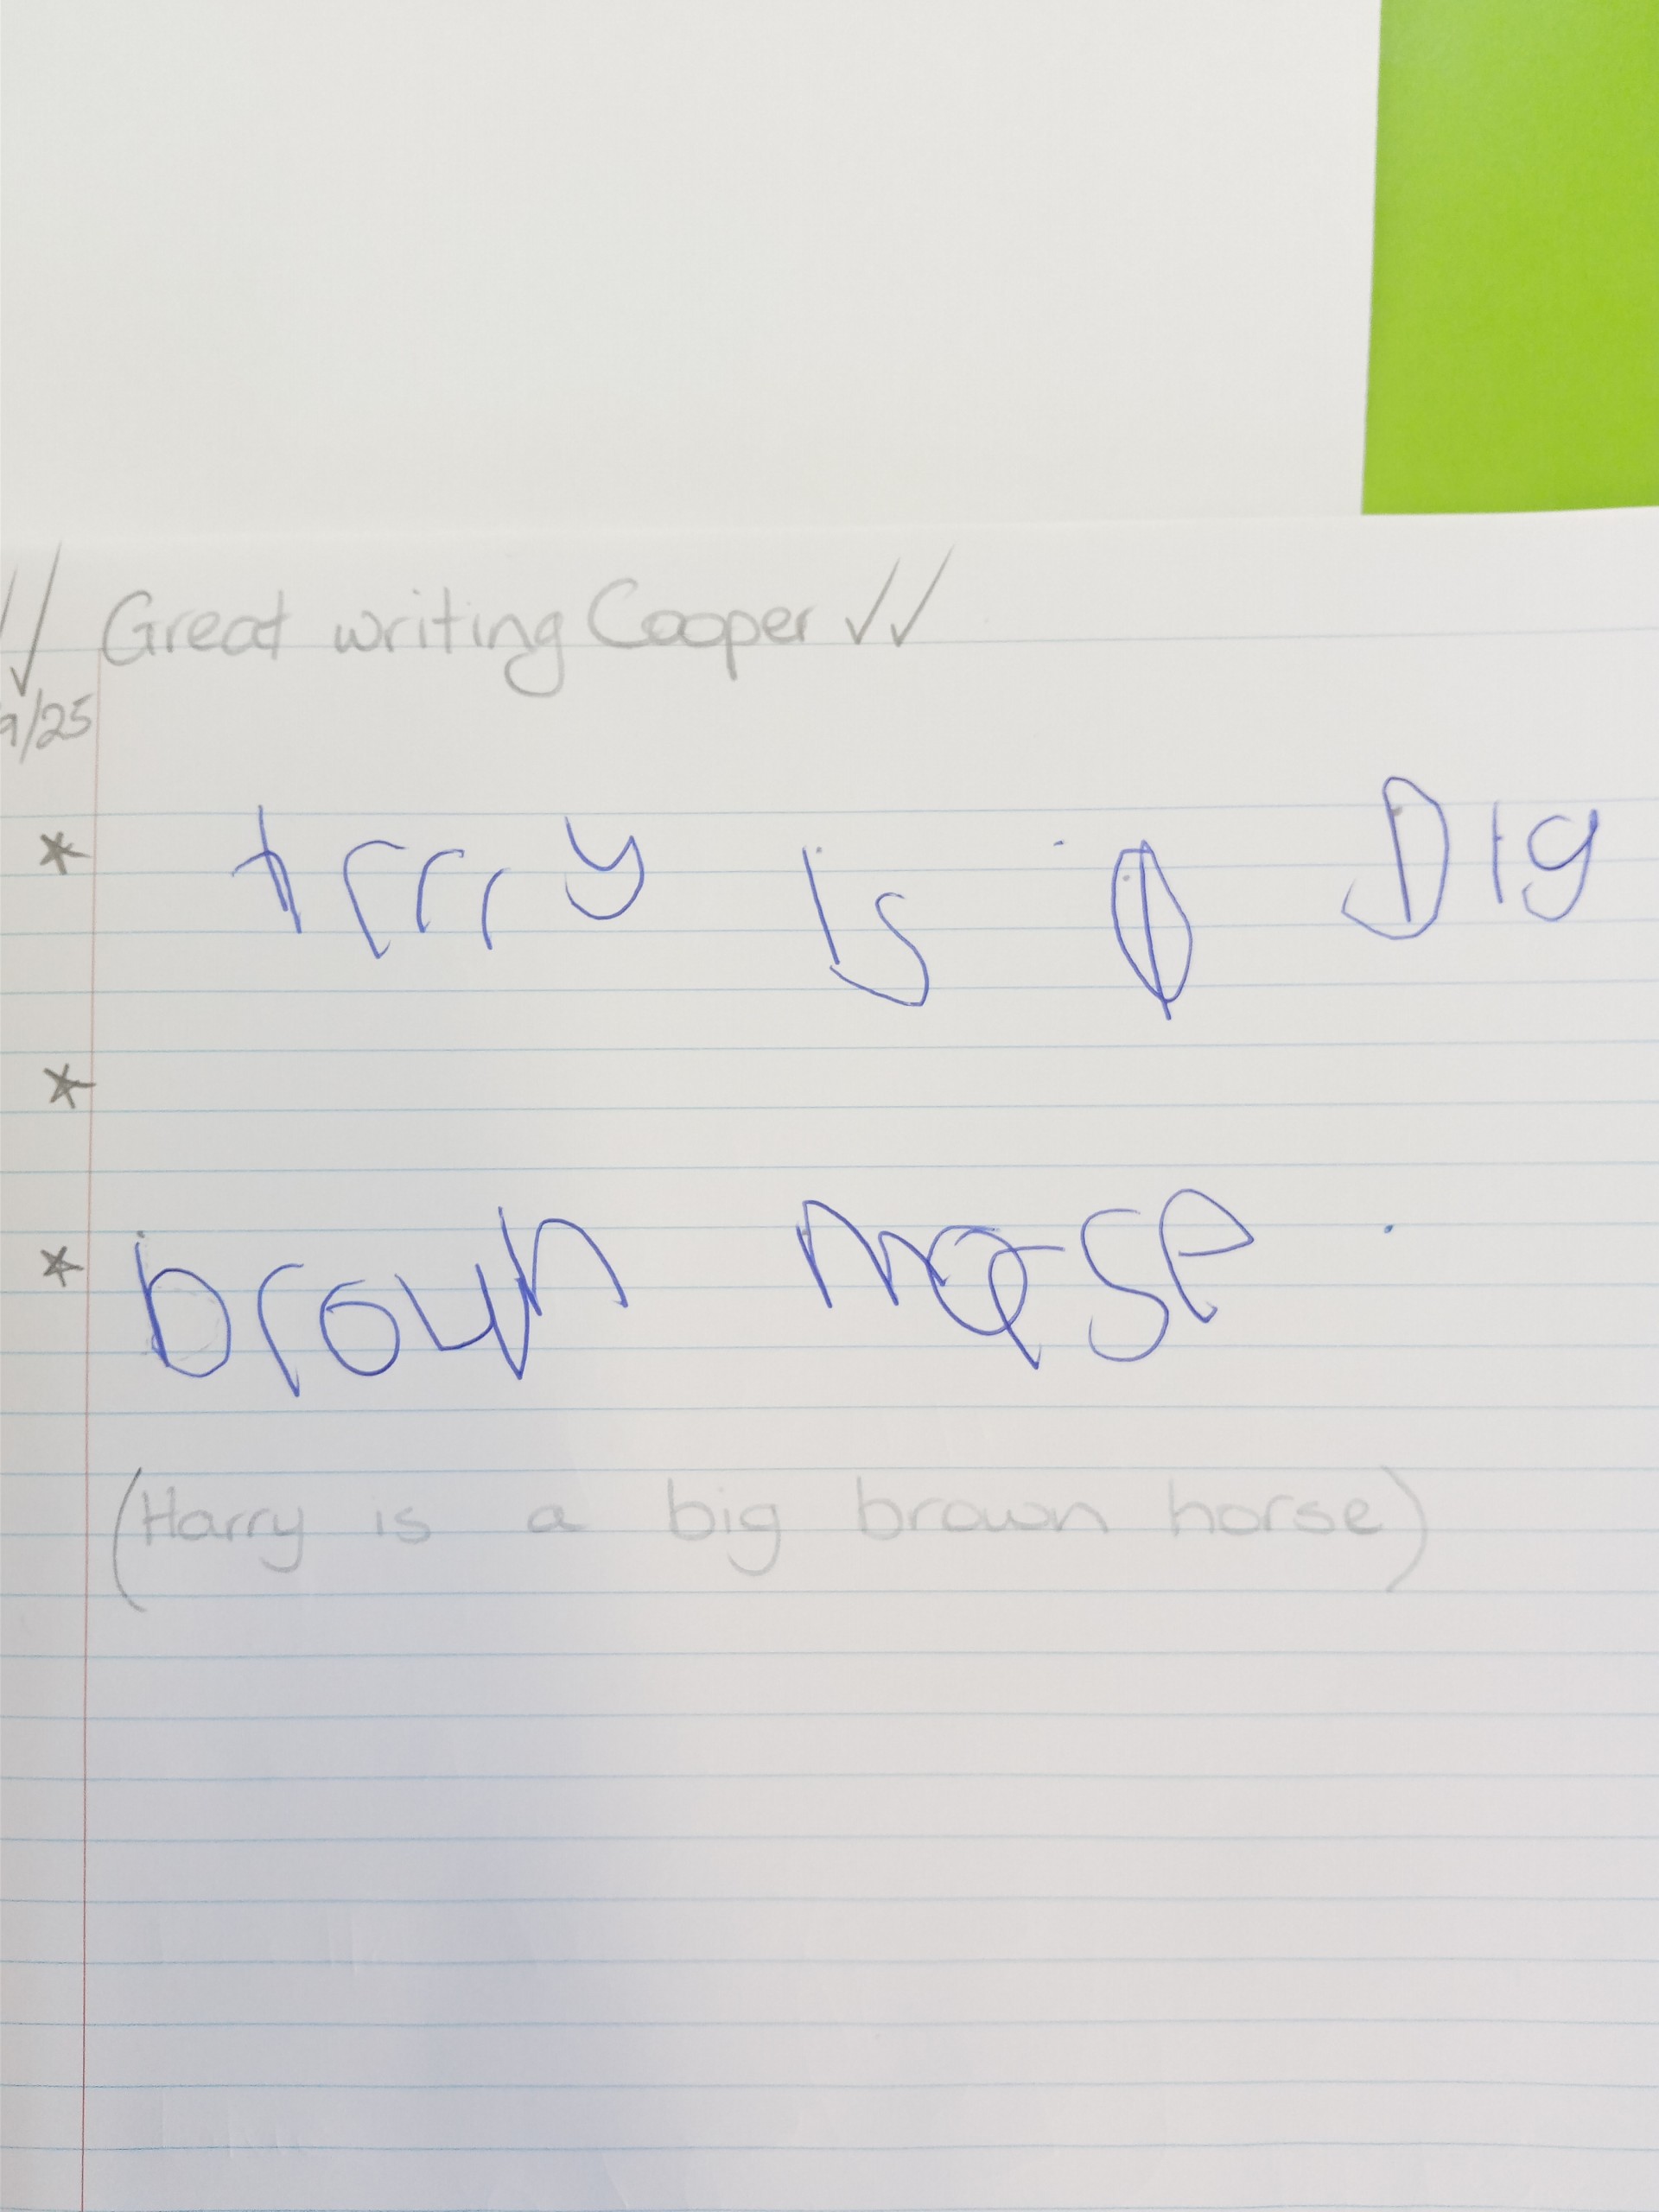 Great writing Cooper
9/25
* Hrrry is a Big
*
* brown horse .
(Harry is a big brown horse)